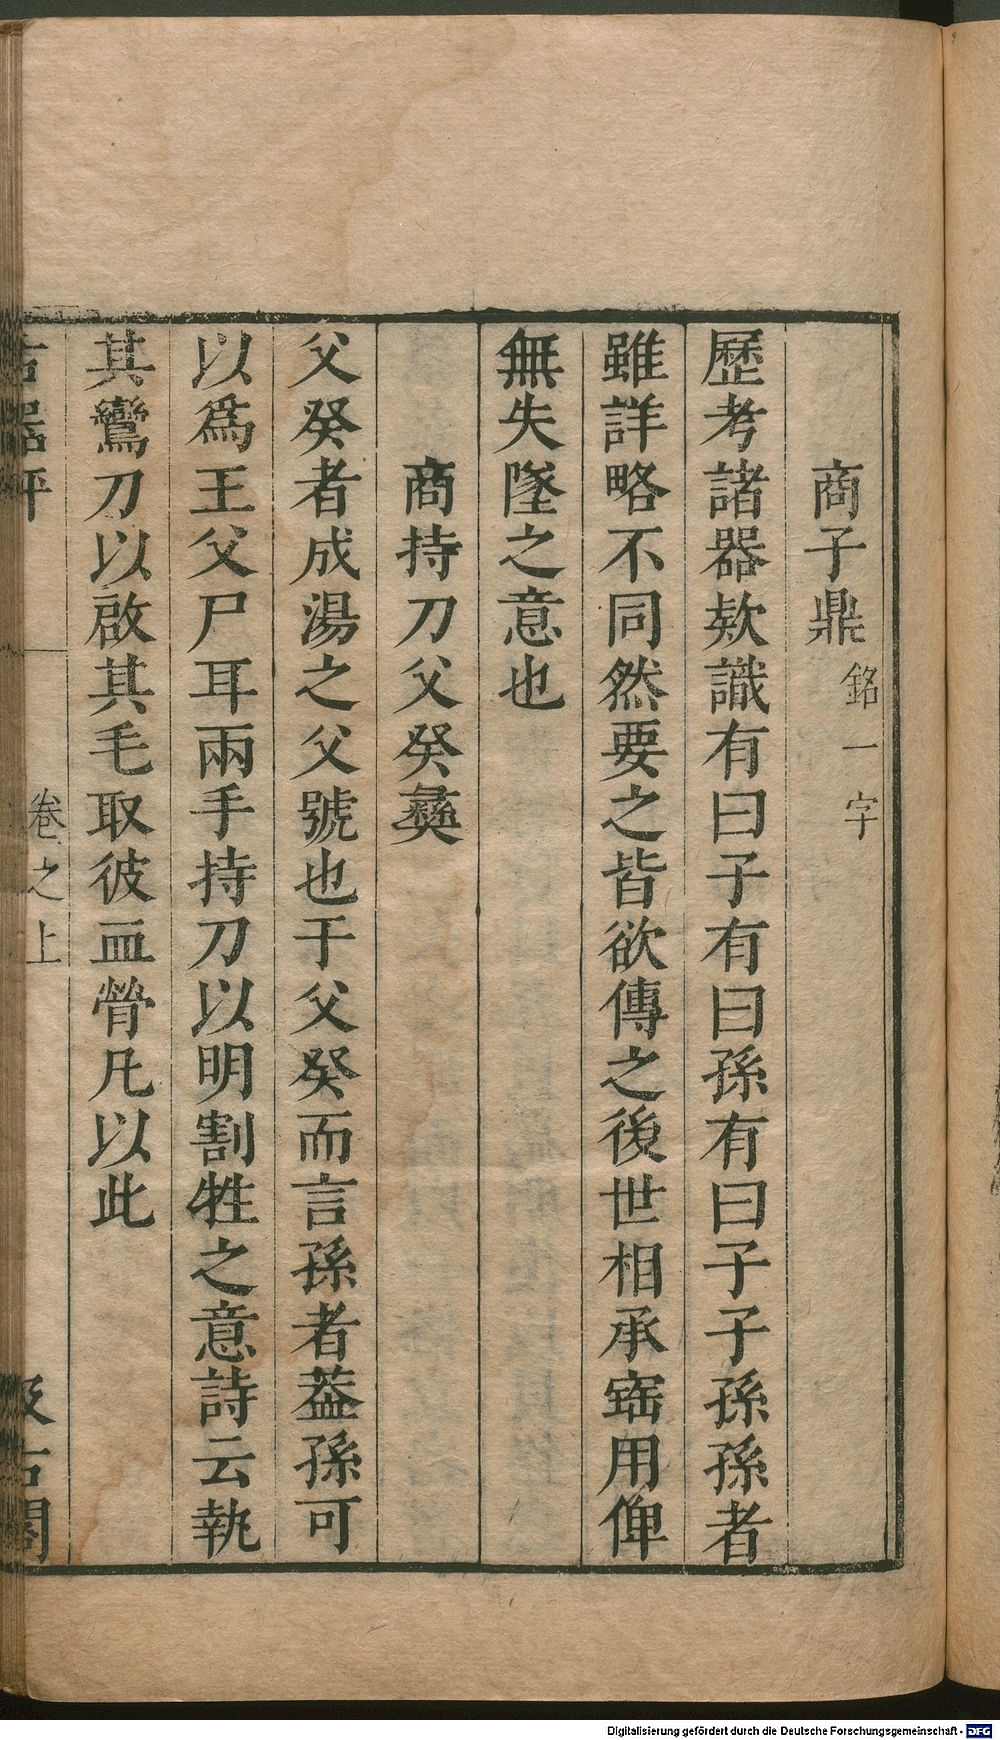 商子鼎 銘一字
歷考諸器欵識有曰子有曰孫有曰子子孫孫者
雖詳略不同然要之皆欲傳之後世相承寳用俾
無失墜之意也
商持刀父癸彝
父癸者成湯之父號也于父癸而言孫者葢孫可
以爲王父尸耳兩手持刀以明割牲之意詩云執
其鸞刀以啟其毛取彼血膋凡以此
古器評 卷之上 汲古閣
Digitalisierung gefördert durch die Deutsche Forschungsgemeinschaft - DFG